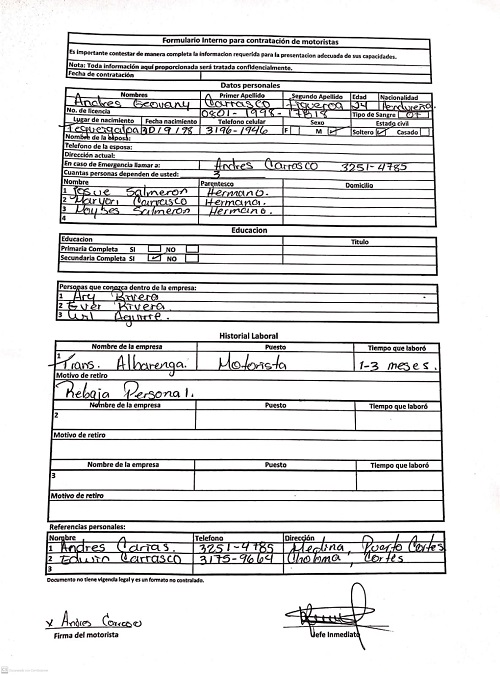 Formulario Interno para contratación de motoristas
Es importante contestar de manera completa la informacion requerida para la presentacion adecuada de sus capacidades.
Nota: Toda información aquí proporcionada será tratada confidencialmente.
Fecha de contratación
Datos personales
Nombres Primer Apellido Segundo Apellido Edad Nacionalidad
Andres Geovany Carrasco Figueroa 24 Hondureña
No. de licencia 0801-1998-17818 Tipo de Sangre O+
Lugar de nacimiento Fecha nacimiento Telefono celular Sexo Estado civil
Tegucigalpa 30/9/98 3196-1946 F M Soltero Casado
Nombre de la esposa:
Telefono de la esposa:
Dirección actual:
En caso de Emergencia llamar a: Andres Carrasco 3251-4785
Cuantas personas dependen de usted: 3
Nombre Parentesco Domicilio
1 Josue Salmeron Hermano.
2 Maryori Carrasco Hermana.
3 Moyses Salmeron Hermano.
4
Educacion
Educacion Titulo
Primaria Completa SI NO
Secundaria Completa SI NO
Personas que conozca dentro de la empresa:
1 Ary Rivera
2 Ever Rivera.
3 Aguirre.
Historial Laboral
Nombre de la empresa Puesto Tiempo que laboró
1 Trans. Albarenga. Motorista 1-3 meses.
Motivo de retiro
Rebaja Personal.
Nombre de la empresa Puesto Tiempo que laboró
2
Motivo de retiro
Nombre de la empresa Puesto Tiempo que laboró
3
Motivo de retiro
Referencias personales:
Nombre Telefono Dirección
1 Andres Carias. 3251-4785 Medina, Puerto Cortes
2 Edwin Carrasco 3175-9664 Choloma, Cortés
3
Documento no tiene vigenda legal y es un formato no contralado.
x Andres Carrasco
Firma del motorista Jefe Inmediato